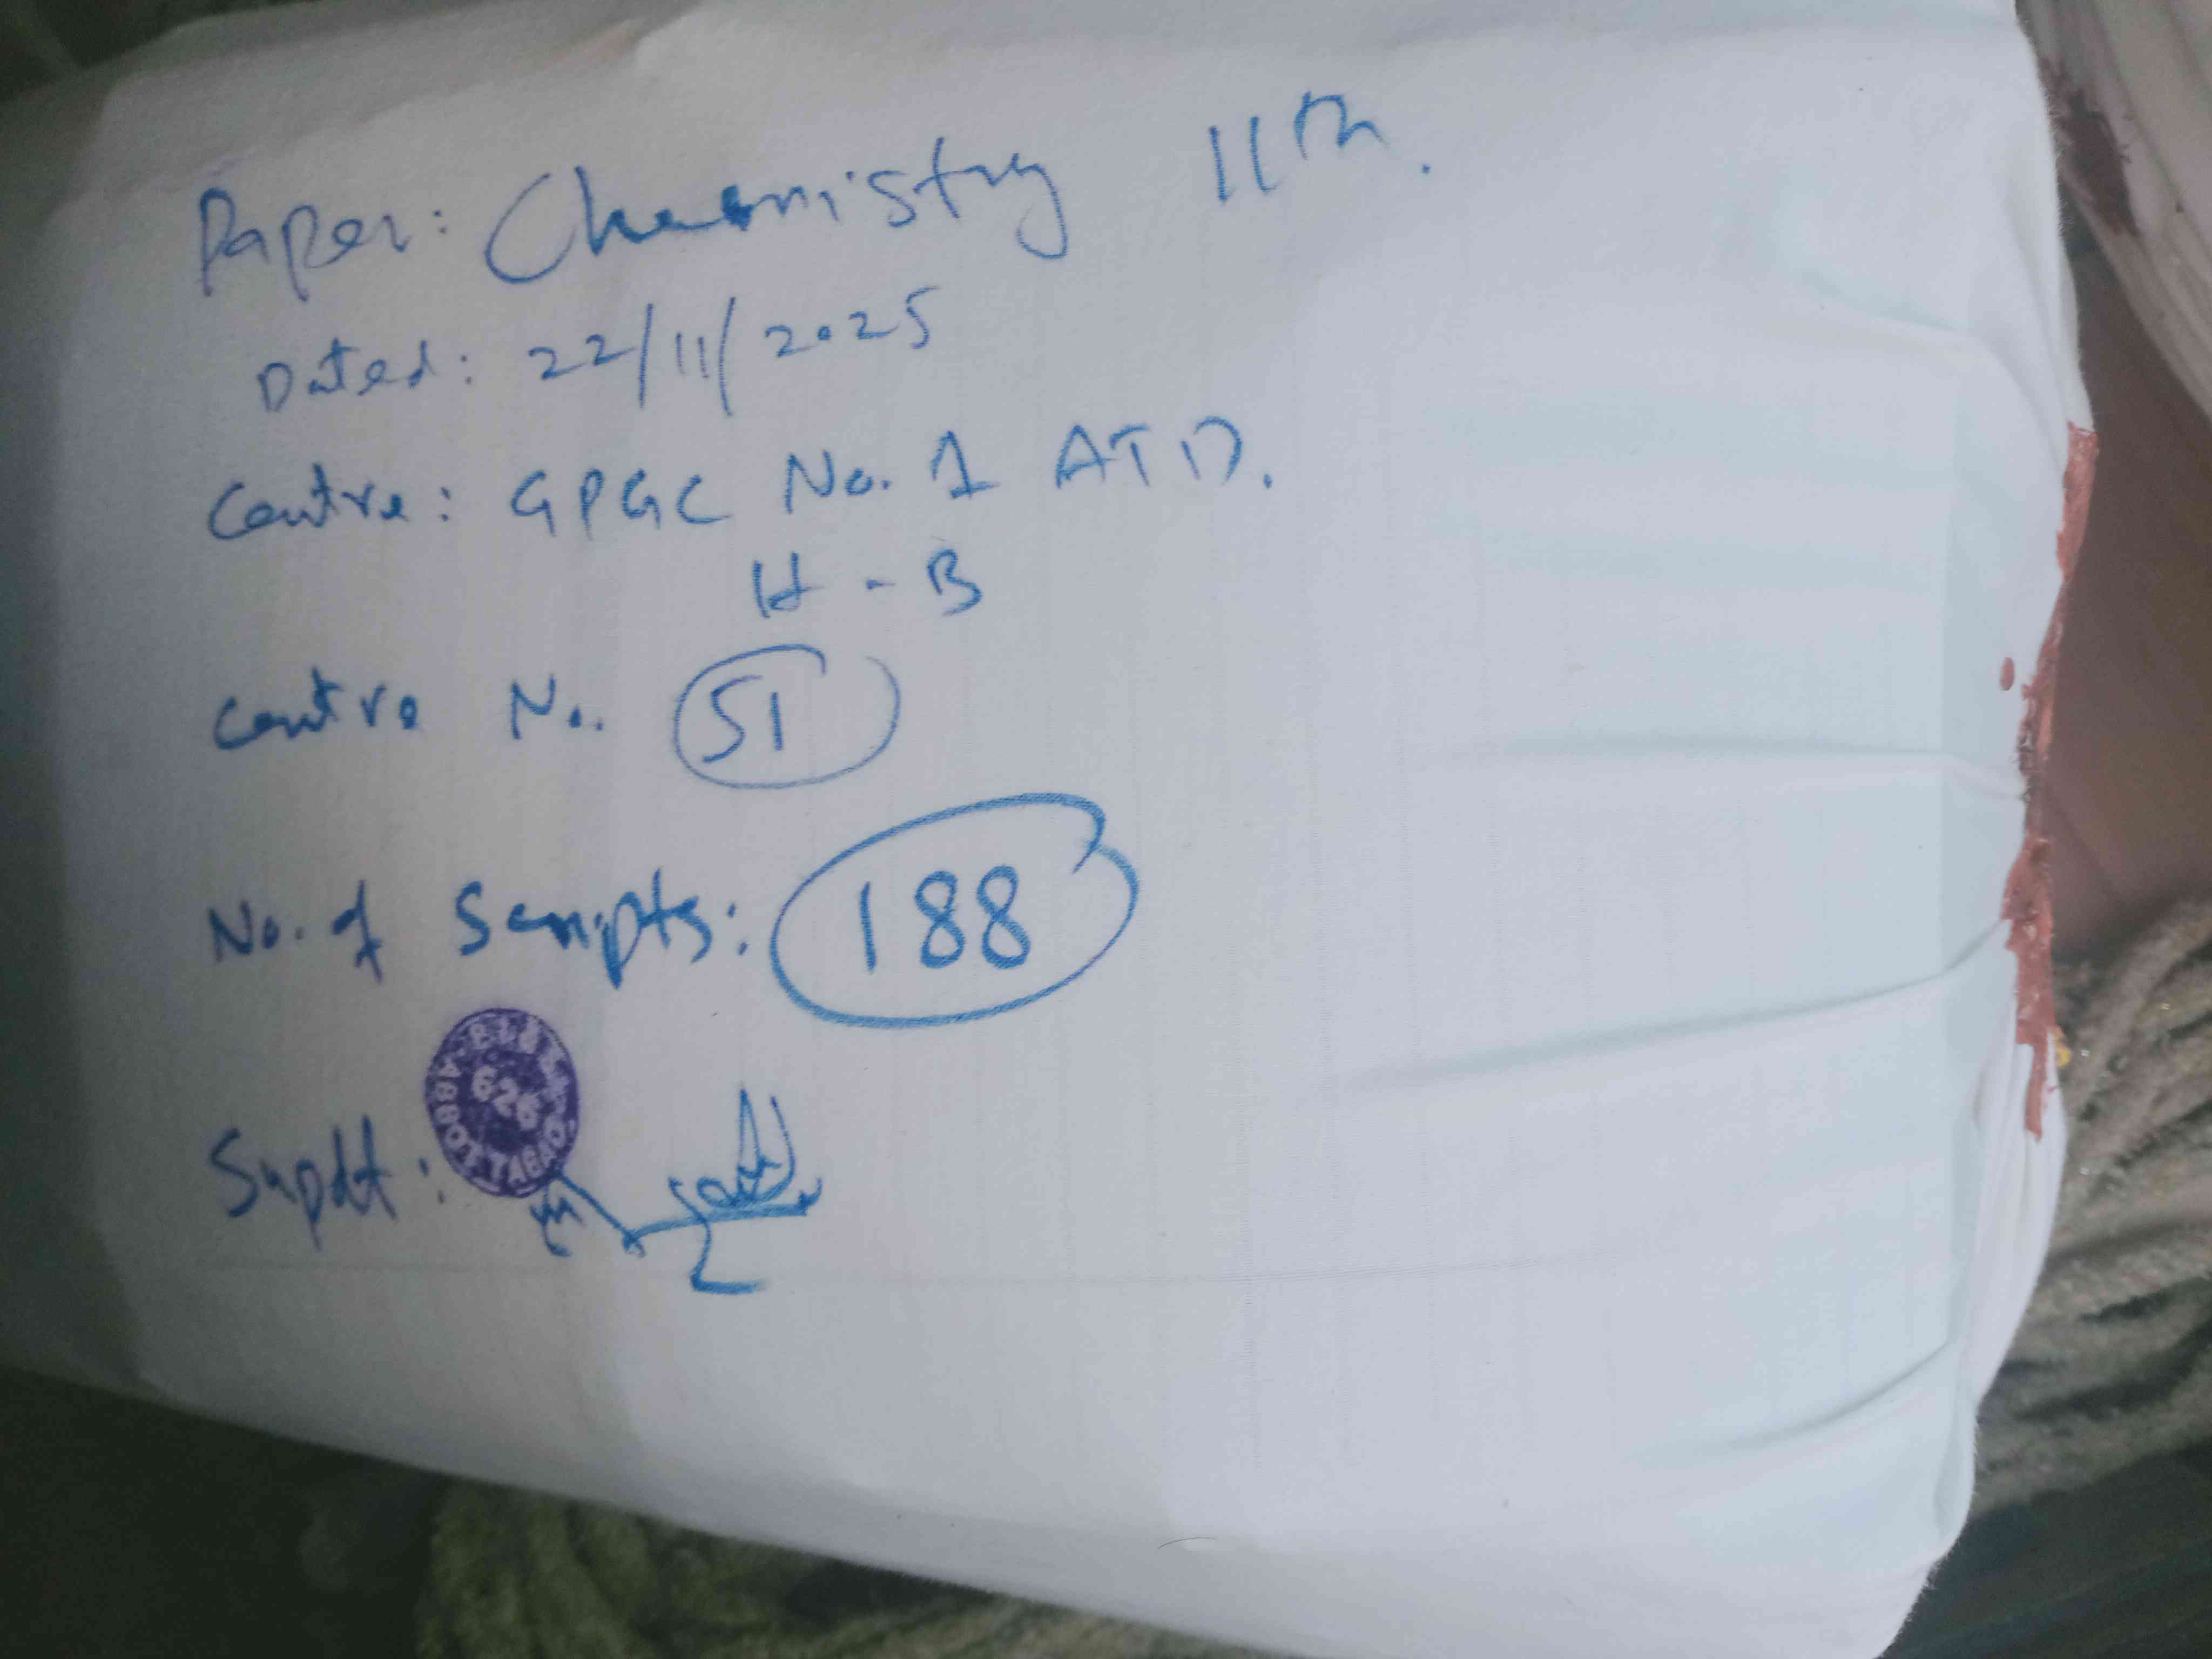 Paper: Chemistry 11th.
Dated: 22/11/2025
Centre: GPGC No. 1 ATD.
H - B
Centre No. 51
No. of Scripts: 188
Supdt:
626
ABBOTTABAD